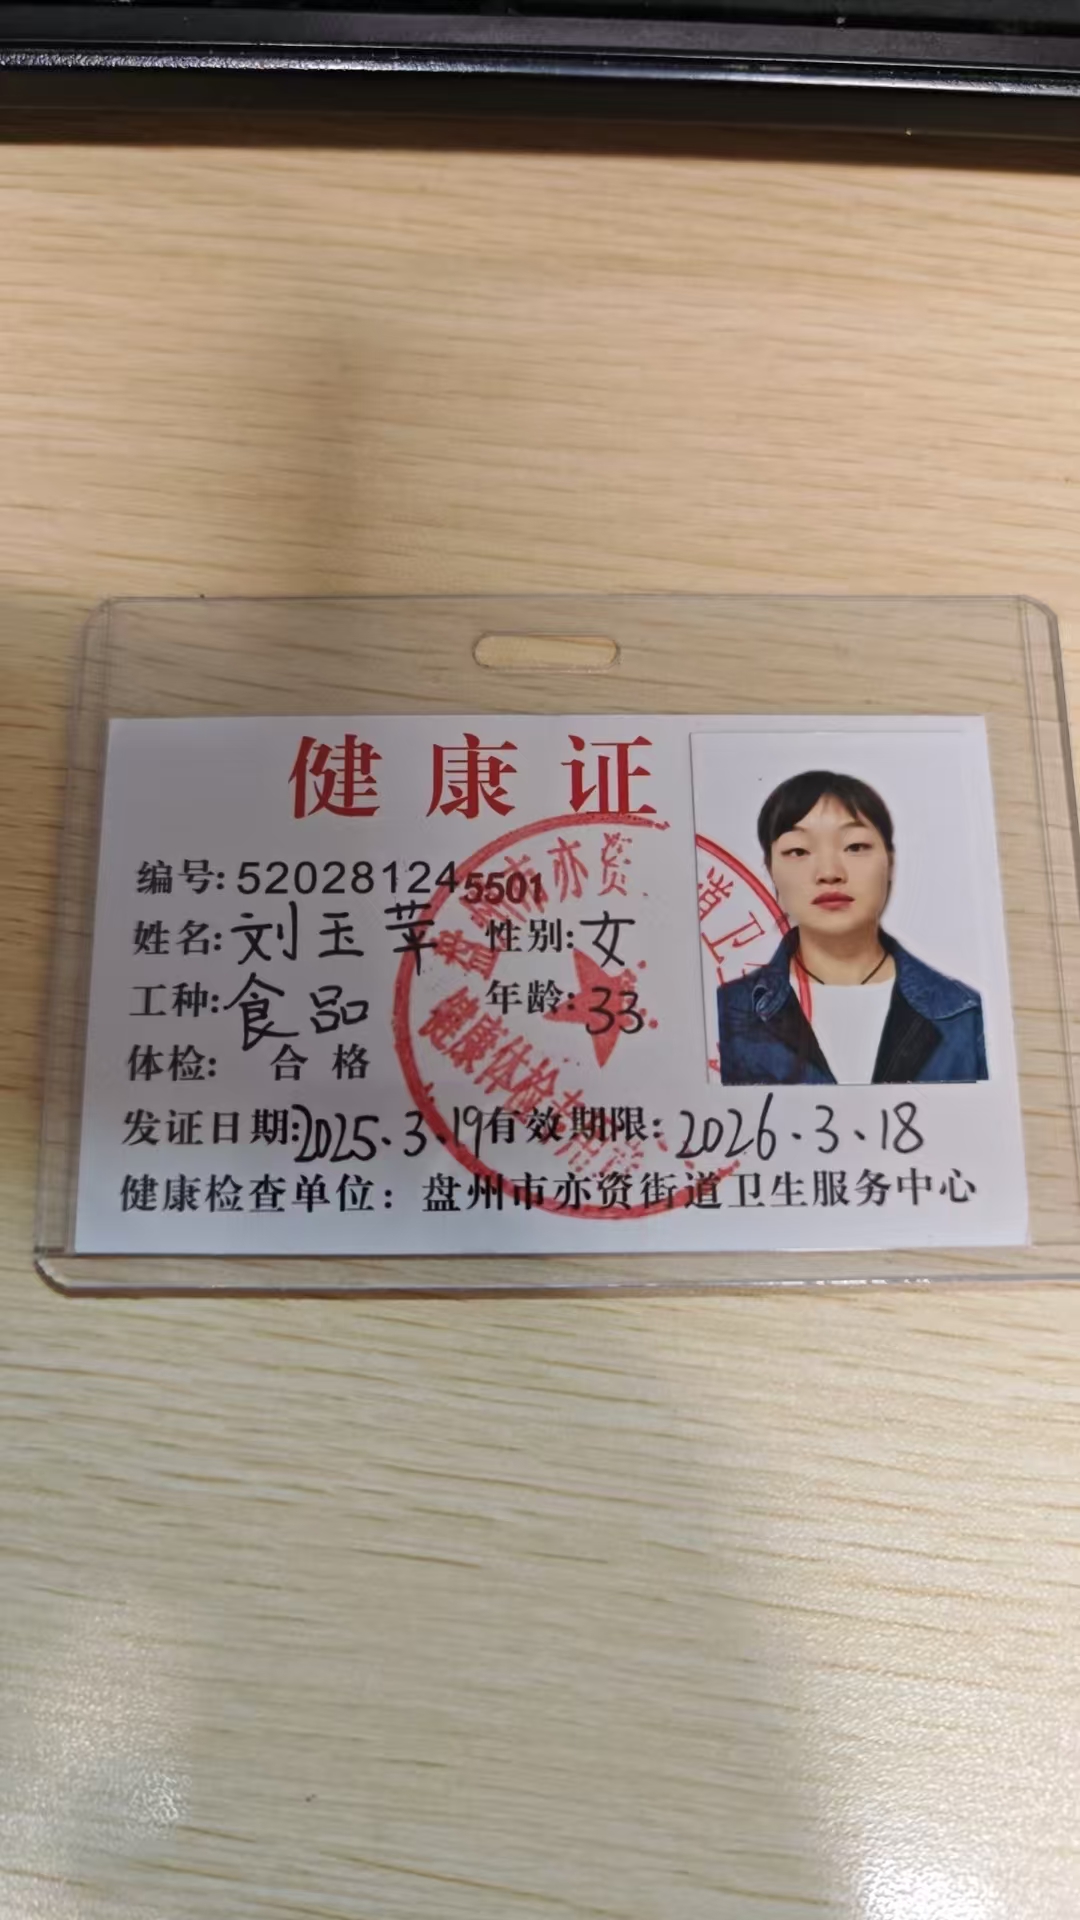 健康证
编号:520281245501
姓名:刘玉苹 性别:女
工种:食品 年龄:33
体检: 合格
发证日期:2025.3.19有效期限:2026.3.18
健康检查单位：盘州市亦资街道卫生服务中心
健康体检专用章